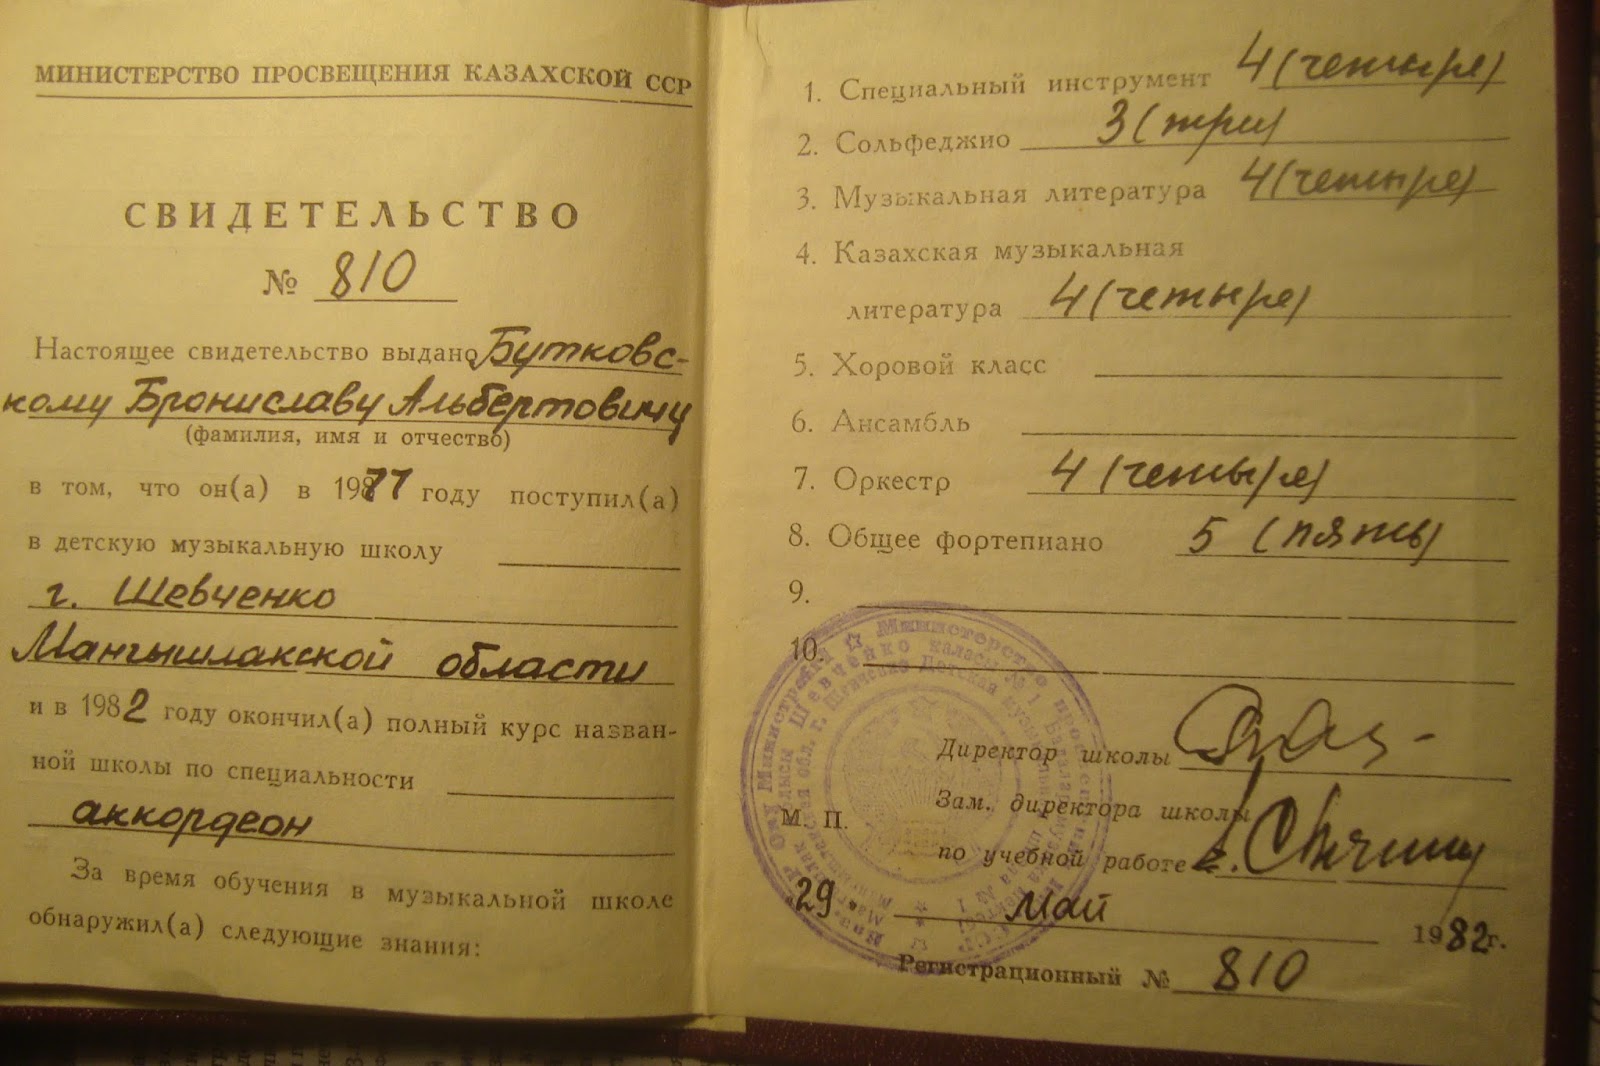 МИНИСТЕРСТВО ПРОСВЕЩЕНИЯ КАЗАХСКОЙ ССР
СВИДЕТЕЛЬСТВО
№ 810
Настоящее свидетельство выдано Бутковс-
кому Брониславу Альбертовичу
(фамилия, имя и отчество)
в том, что он(а) в 1977 году поступил(а)
в детскую музыкальную школу
г. Шевченко
Мангышлакской области
и в 1982 году окончил(а) полный курс назван-
ной школы по специальности
аккордеон
За время обучения в музыкальной школе
обнаружил(а) следующие знания:
1. Специальный инструмент 4 (четыре)
2. Сольфеджио 3 (три)
3. Музыкальная литература 4 (четыре)
4. Казахская музыкальная
литература 4 (четыре)
5. Хоровой класс
6. Ансамбль
7. Оркестр 4 (четыре)
8. Общее фортепиано 5 (пять)
9.
10.
Директор школы
Зам. директора школы
по учебной работе
М. П.
29 май 1982 г.
Регистрационный № 810